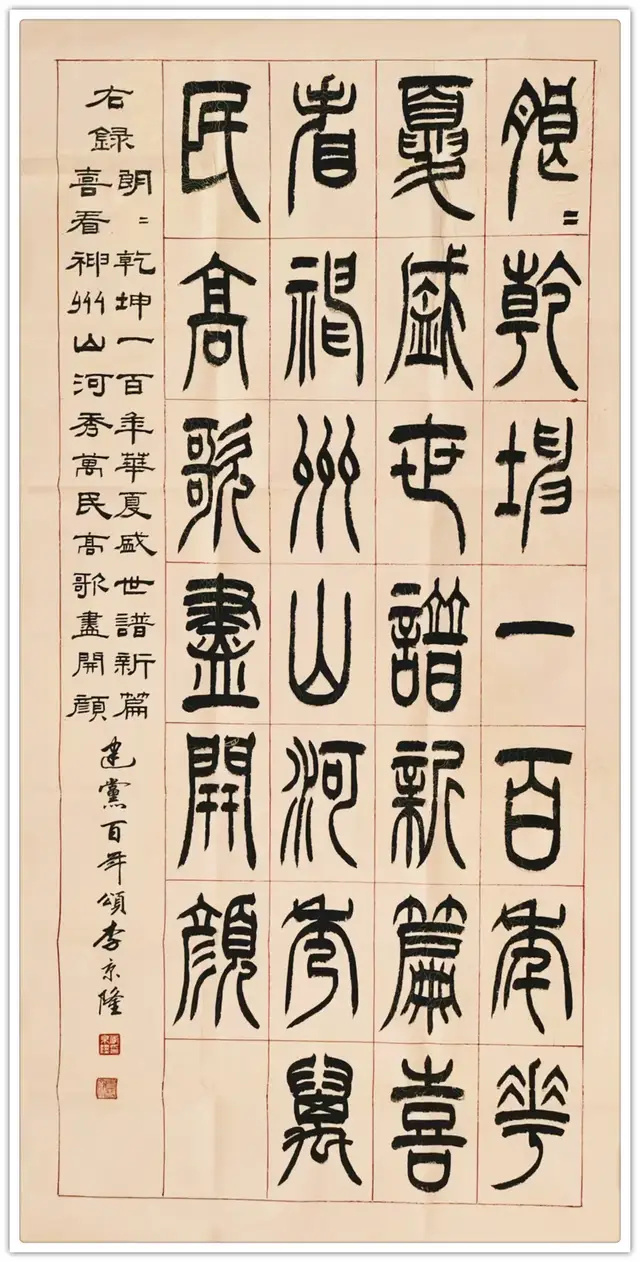 朗〻乾坤一百年華
夏盛世譜新篇喜
看神州山河秀萬
民高歌盡開顏
右録
朗〻乾坤一百年華夏盛世譜新篇
喜看神州山河秀萬民高歌盡開顏
建黨百年頌李京隆